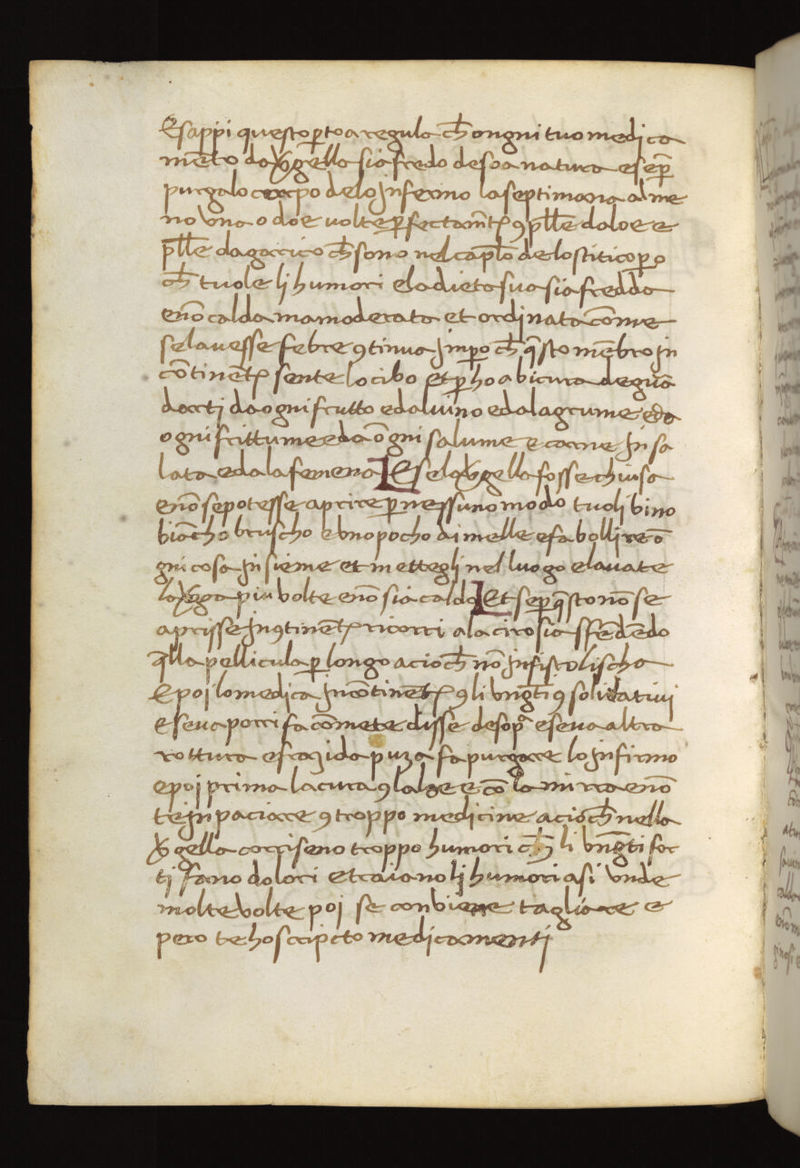 E sappi questo p̱ to a regula ch̄ ongni tuo medica
mēto da vg̃ella sia fredo de soa natura e sēp̱
purga lo corpo de lo jnfermo la septimana al me
no vna o doe uolte p̱fectam̄te 9 pill̄e daloe e
pill̄e dagarico ch̄ sono nel cap̄lo de lo stitico p̱o
ch̄ tuole lj humori e la dieta sua sia fredda
e nō calda ma moderata et ordinata cōme
se lauesse febre 9tinua jmp̱o ch̄ q̄sto mēbro jn
cōtinēte sente lo cibo et p̱ho abi cura de guā
darti da ogni frutto e da luino e da lagrume e da
ogni frittume e da ōgni salume e carne jn sa
lata e da la femena E se la vg̃ella fosse chiusa
e nō se potesse aprire p̱ nessuno modo tuolj vino
biācho bruscho e vno pocho di melle e fa bollire ō
gni cosa jnsieme et mettegli nel luogo e lauate
la vg̃a piu volte e nō sia calda Et se p̱ q̄sto nō se
aprisse jn9tinēte ricorri a la cirosia ffēdēdo
q̄lla pellicula p̱ longo acioch̄ nō jnfistolischa
E poj lo medica jncōtinēte 9 li vngt̄i 9solidatiuj
e se ua porri fa cōme te disse de sop̱ e se ua altra
rottura e fragida puza fa purgare lo jnfirmo
e poj prima la cura 9 lalze e cō la mirra e nō
te jnpaciare 9 troppo medicine acioch̄ nella
vg̃ella corriseno troppo humori ch̄ lj vngt̄i for
tj fano dolori e traiano lj humori a si vnde
molte volte poj se conviene tagliare e
pero te ho scripto medicamentj